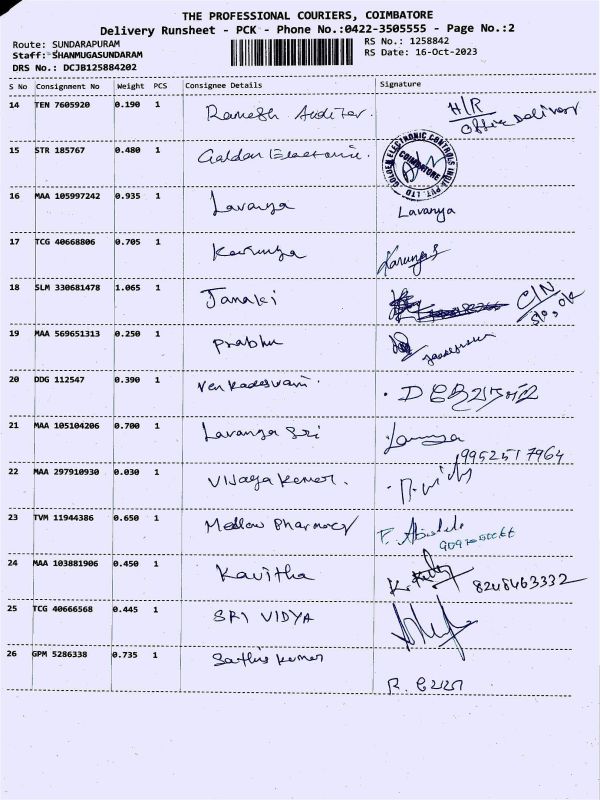 THE PROFESSIONAL COURIERS, COIMBATORE
Delivery Runsheet - PCK - Phone No.:0422-3505555 - Page No.:2
Route: SUNDARAPURAM RS No.: 1258842
Staff: SHANMUGASUNDARAM RS Date: 16-Oct-2023
DRS No.: DCJB125884202
S No Consignment No Weight PCS Consignee Details Signature
14 TEN 7605920 0.190 1 Ramesh Auditor. H/R
Office Delivery
15 STR 185767 0.480 1 Golden Electronic. GOLDEN ELECTRONIC CONTROLS INDIA PVT. LTD COIMBATORE
16 MAA 105997242 0.935 1 Lavanya Lavanya
17 TCG 40668806 0.705 1 Karunya Karunya
18 SLM 330681478 1.065 1 Janaki C/N
19 MAA 569651313 0.250 1 Prabhu
20 DDG 112547 0.390 1 Venkadeswari.
21 MAA 105104206 0.700 1 Lavanya Sri
9952517964
22 MAA 297910930 0.030 1 Vijaya Kumar.
23 TVM 11944386 0.650 1 Medlow Pharmacy
24 MAA 103881906 0.450 1 Kavitha 8248463332
25 TCG 40666568 0.445 1 SRI VIDYA
26 GPM 5286338 0.735 1 Sathis Kumar